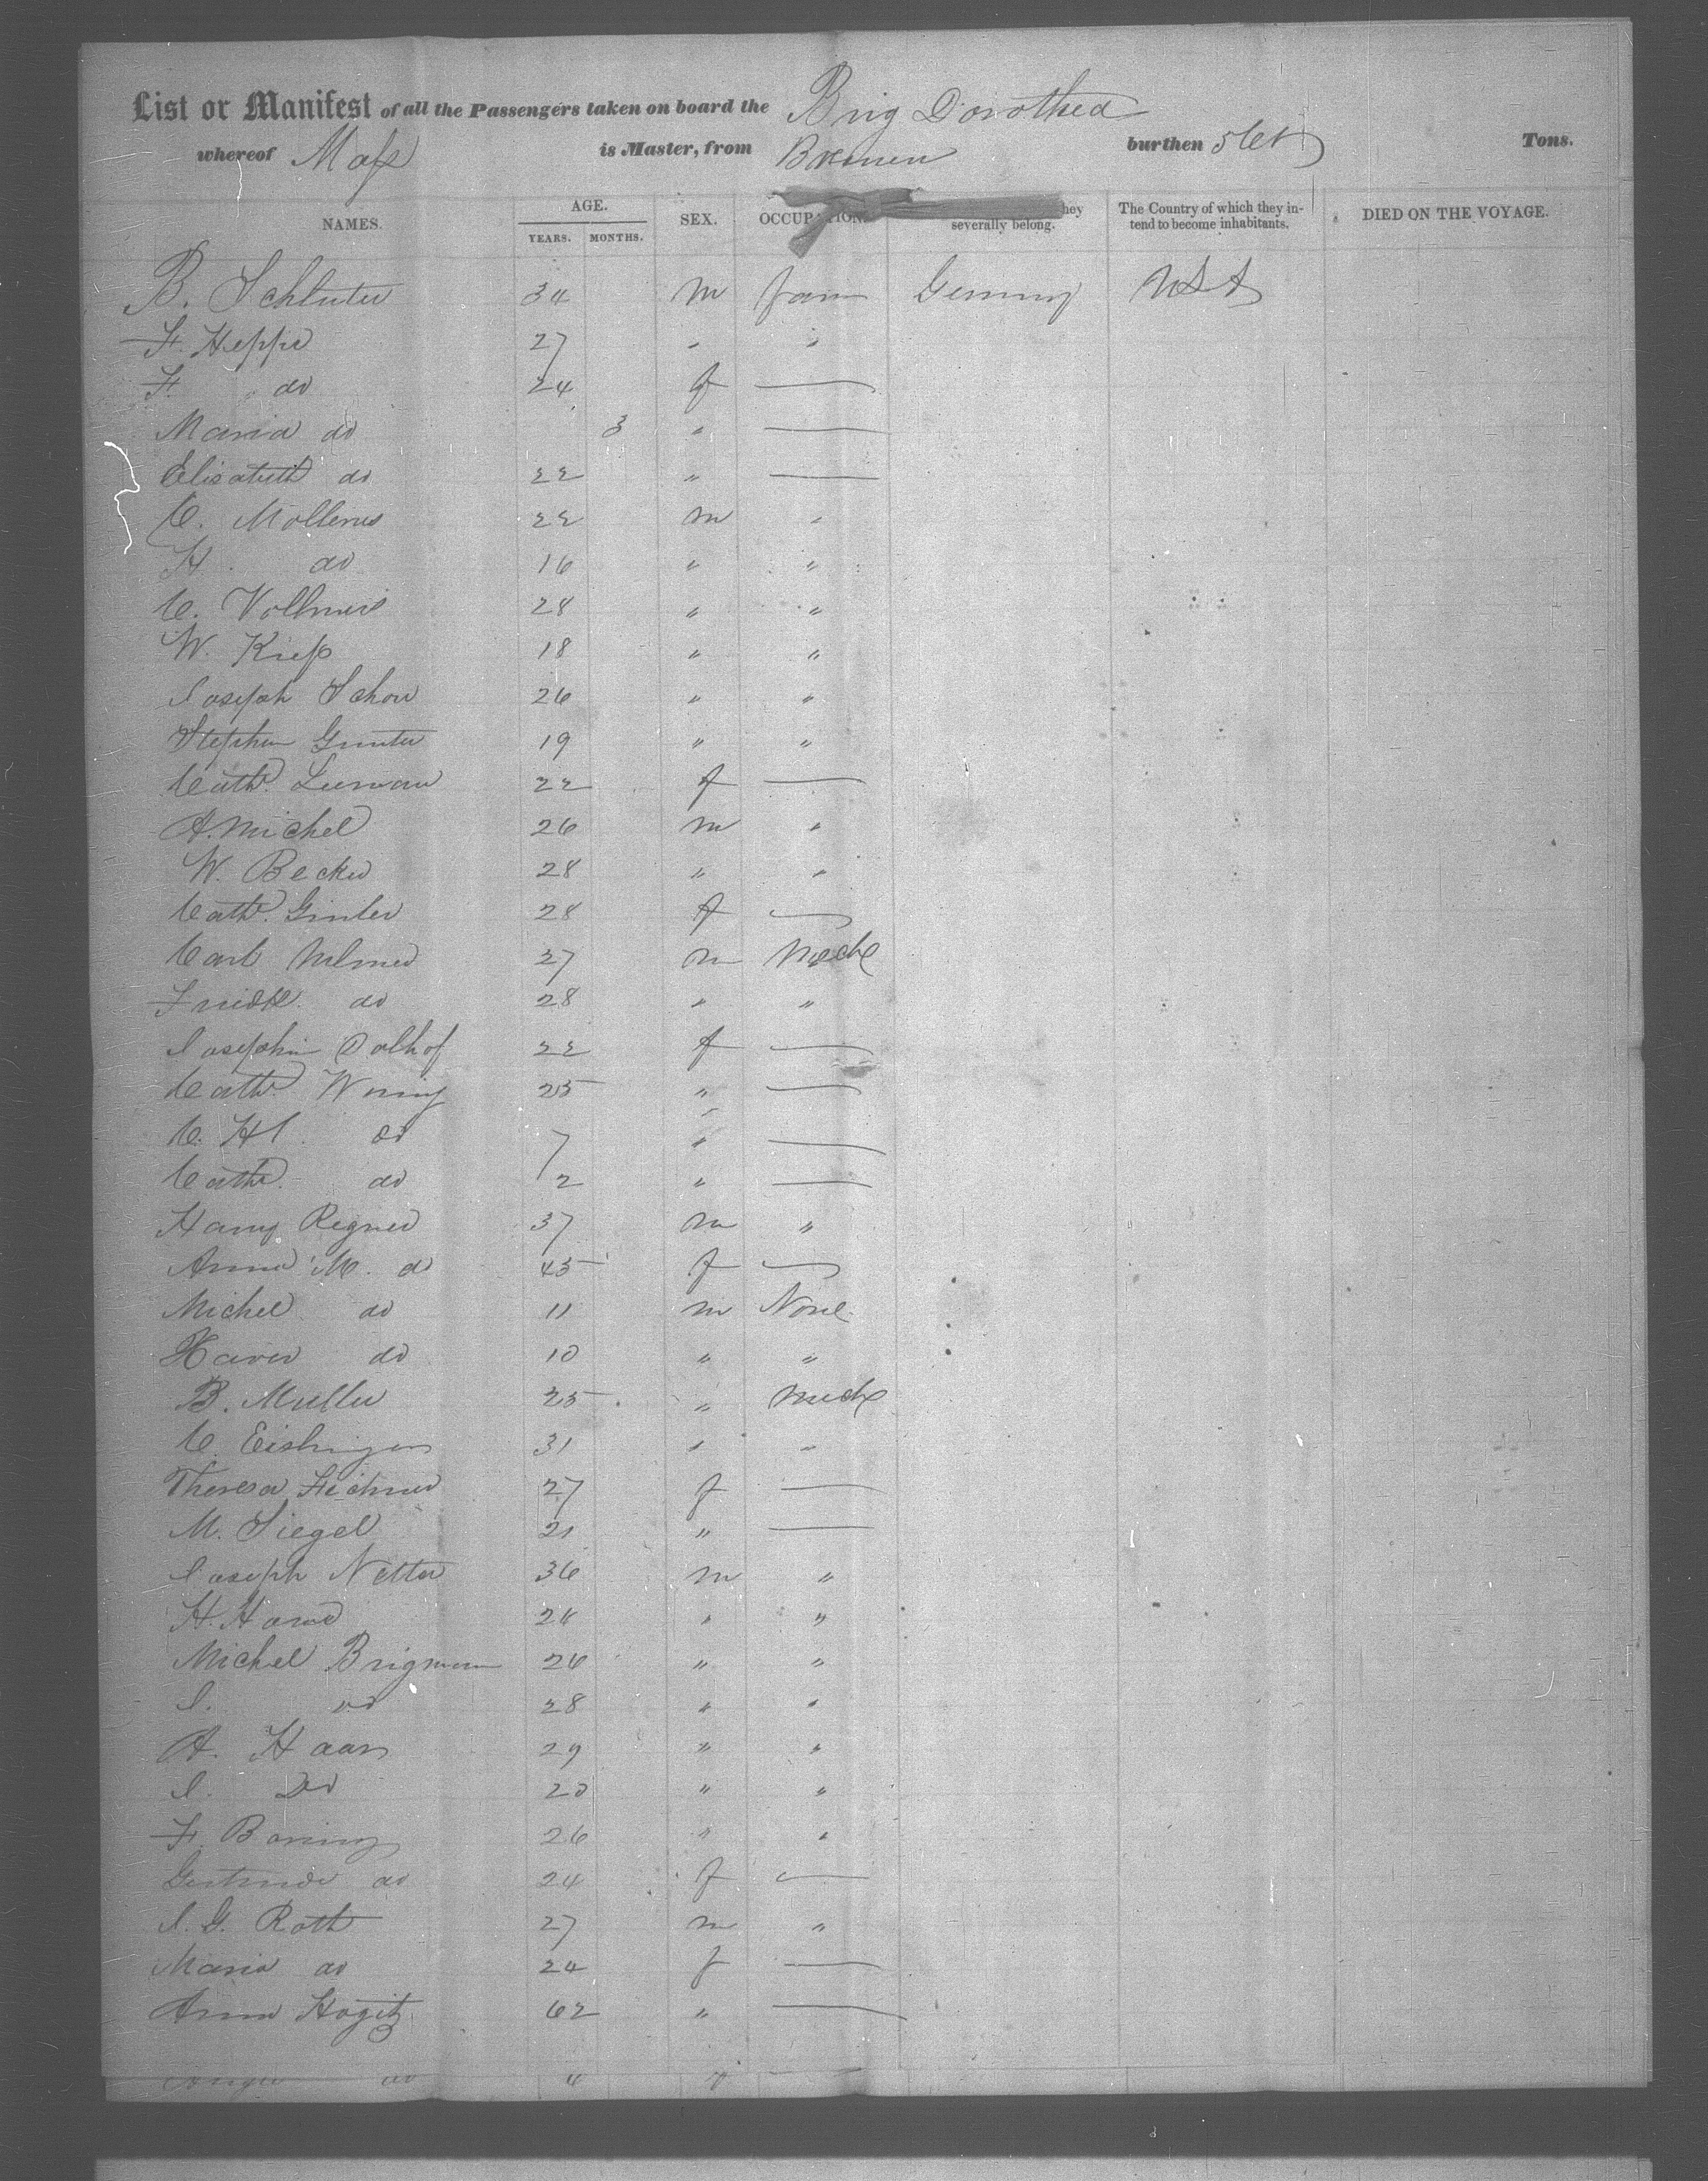 List or Manifest of all the Passengers taken on board the Brig Dorothea
whereof Mass is Master, from Bremen burthen Tons.
NAMES. AGE. YEARS. MONTHS. SEX. OCCUPATION. they severally belong. The Country of which they intend to become inhabitants. DIED ON THE VOYAGE.
B. Schluter 34 m farm Germny USA
F. Heppe 27 " "
F. do 24 f —
Maria do 3 " —
Elisabeth do 22 " —
C. Mollerus 22 m "
H. do 16 " "
C. Vollmers 28 " "
W. Kiess 18 " "
Joseph Schow 26 " "
Stephen Gunter 19 " "
Cath. 22 f —
A. Michel 26 m "
W. Becker 28 " "
Cath. Ginter 28 f —
Carl 27 m Mech
Friedr. do 28 " "
Josephin Dolhof 22 f —
Cath. 25 " —
C. do 7 " —
Cath. do 2 " —
Regner 37 m "
Anna M. do 45 f —
Michel do 11 m None
Xaver do 10 " "
B. Muller 25 " Mech
C. 31 " "
Theresa 27 f —
M. Siegel 21 " —
Joseph Netter 36 m "
H. 26 " "
Michel Brigmann 26 " "
J. do 28 " "
A. Haan 29 " "
J. Do 20 " "
F. Boning 26 " "
Gertrude do 24 f —
J. G. Roth 27 m "
Maria do 24 f —
Anna Hogitz 62 " —
do